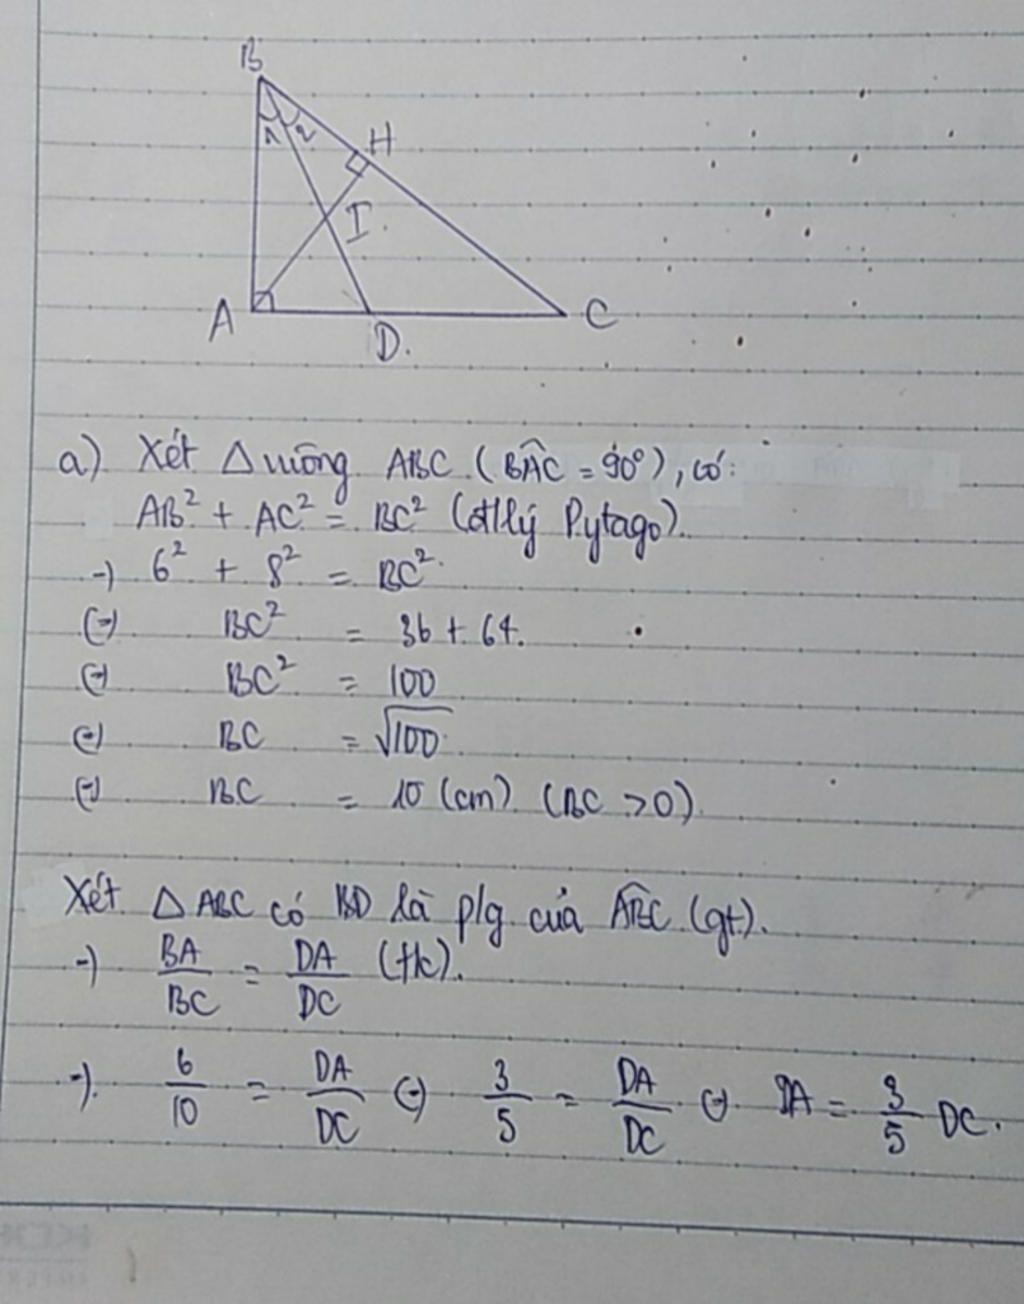 B
1 2
H
I.
A
D.
C
a) Xét Δ vuông ABC (BÂC = 90°), có:
AB² + AC² = BC² (đ/lý Pytago).
→ 6² + 8² = BC².
⇔ BC² = 36 + 64.
⇔ BC² = 100
⇔ BC = √100
⇔ BC = 10 (cm) (BC > 0).
Xét Δ ABC có BD là p/g của \widehat{ABC} (gt).
→ BA/BC = DA/DC (t/c).
→ 6/10 = DA/DC ⇔ 3/5 = DA/DC ⇔ DA = 3/5 DC.